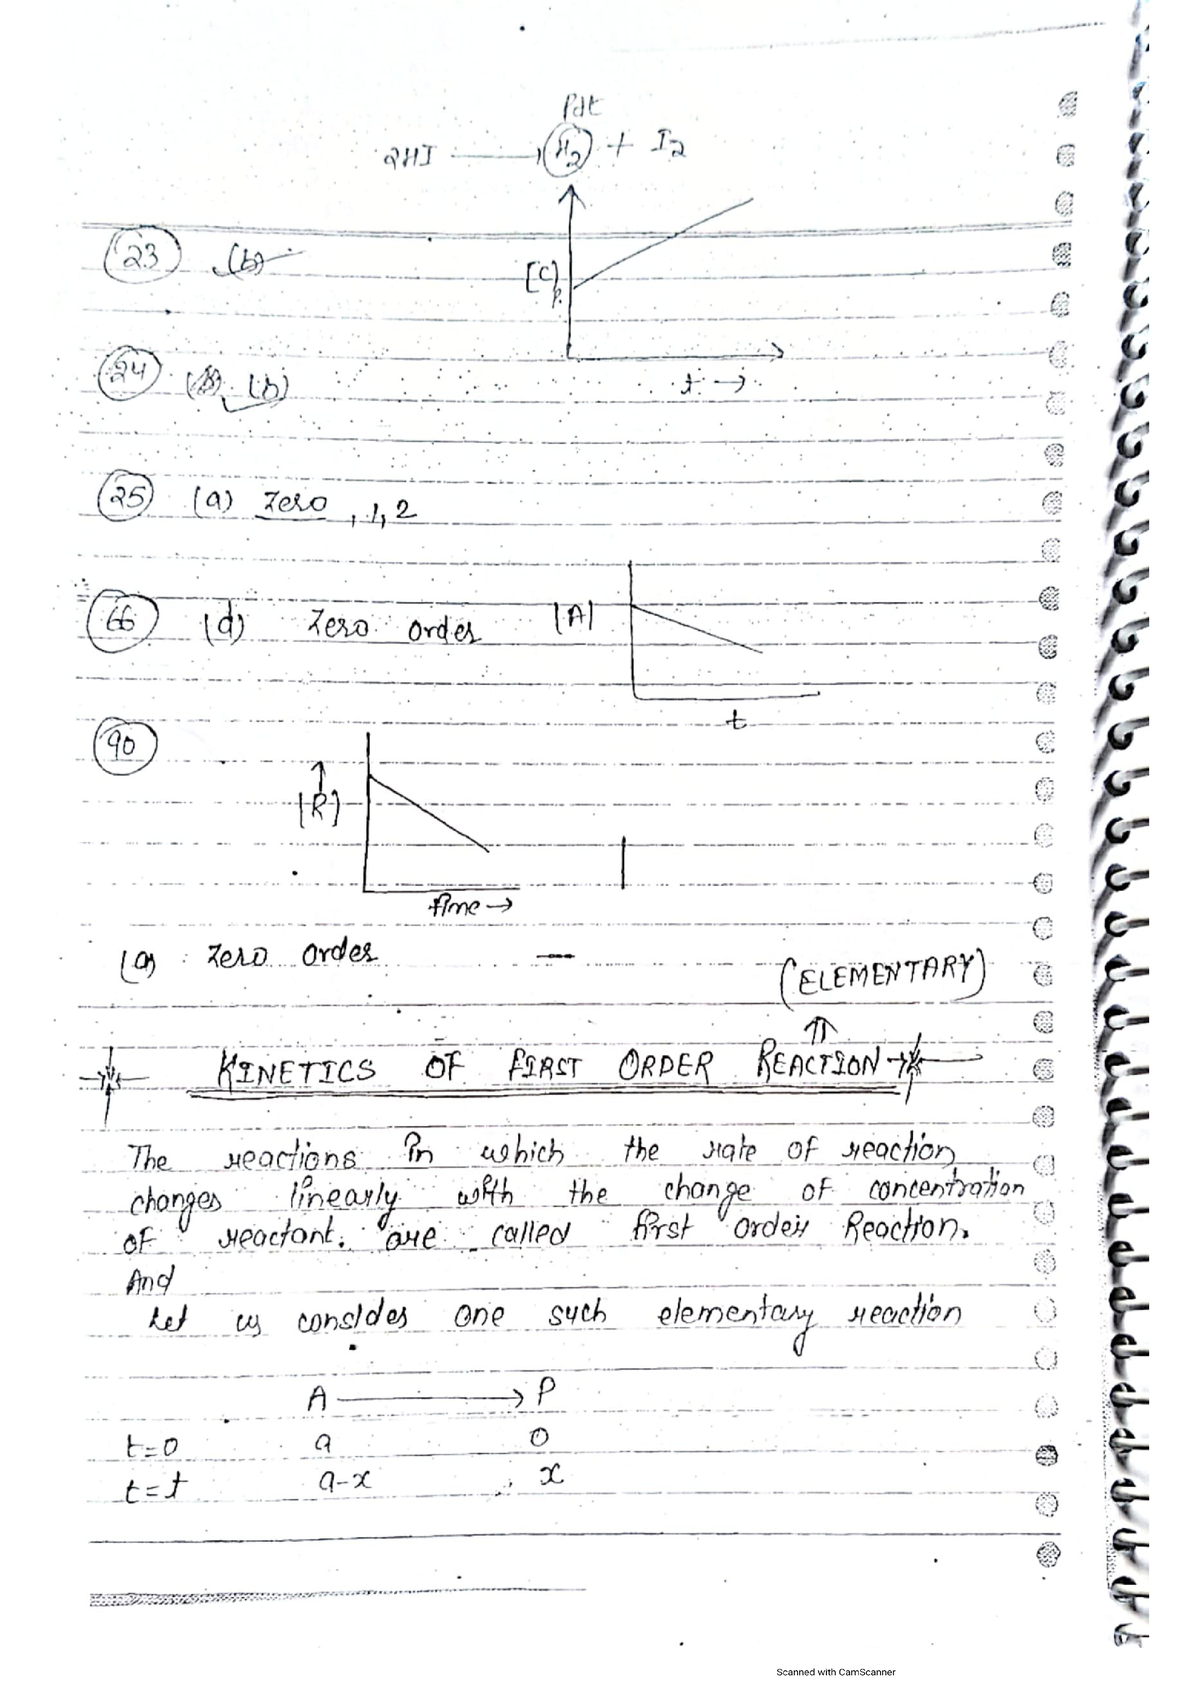 Pdt
2HI → H2 + I2
23 (b)
[C]p
t →
24 (b)
25 (a) Zero, 1, 2
66 (d) Zero order [A]
t
90
↑
[R]
time →
(a) Zero order
(ELEMENTARY)
⇑
KINETICS OF FIRST ORDER REACTION
The reactions in which the rate of reaction
changes linearly with the change of concentration
of reactant. are called first order Reaction.
And
Let us consider one such elementary reaction
A → P
t=0 a 0
t=t a-x x
Scanned with CamScanner